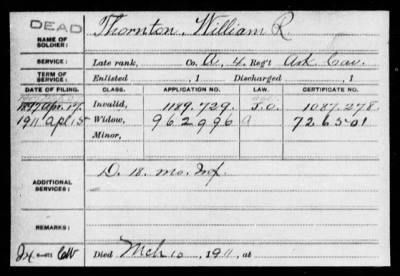 DEAD
NAME OF SOLDIER: Thornton, William R.
SERVICE: Late rank, Co. A, 4. Reg't Ark Cav.
TERM OF SERVICE: Enlisted , 1 Discharged , 1
DATE OF FILING. CLASS. APPLICATION NO. LAW. CERTIFICATE NO.
1897 Apr. 17. Invalid, 1189.729. 1087.278.
1911 Apl. 5 Widow, 962996 726501
Minor,
ADDITIONAL SERVICES: D. 18. Mo. Inf
REMARKS:
Inf Died Mch 10, 1911, at